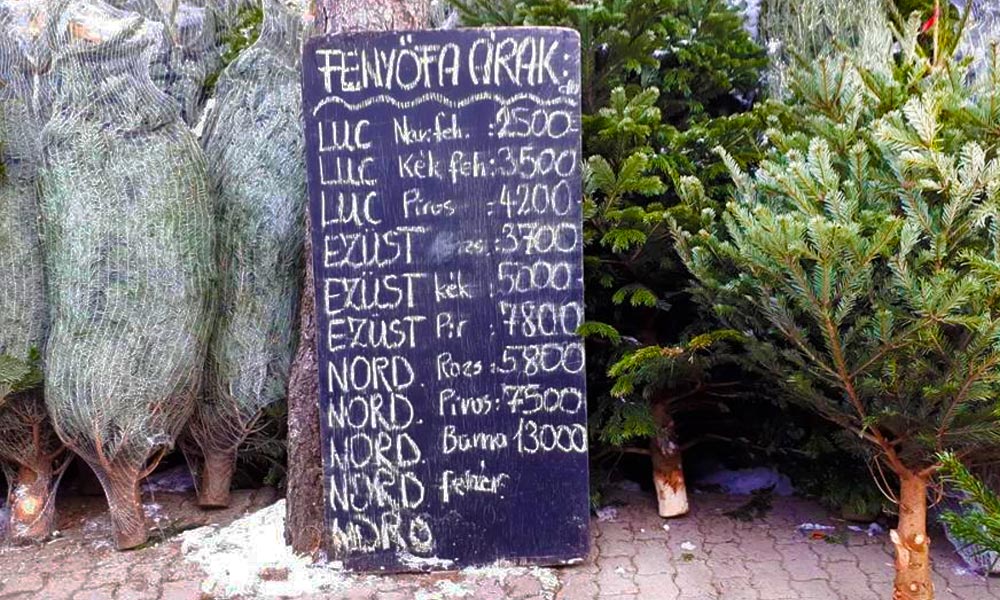 FENYŐFA ÁRAK:
LUC Nar.feh. :2500=
LUC Kék feh:3500
LUC Piros :4200
EZÜST :3700
EZÜST kék :5000
EZÜST Pir :7800
NORD. Rozs :5800
NORD. Piros:7500
NORD Barna 13000
NORD fehér